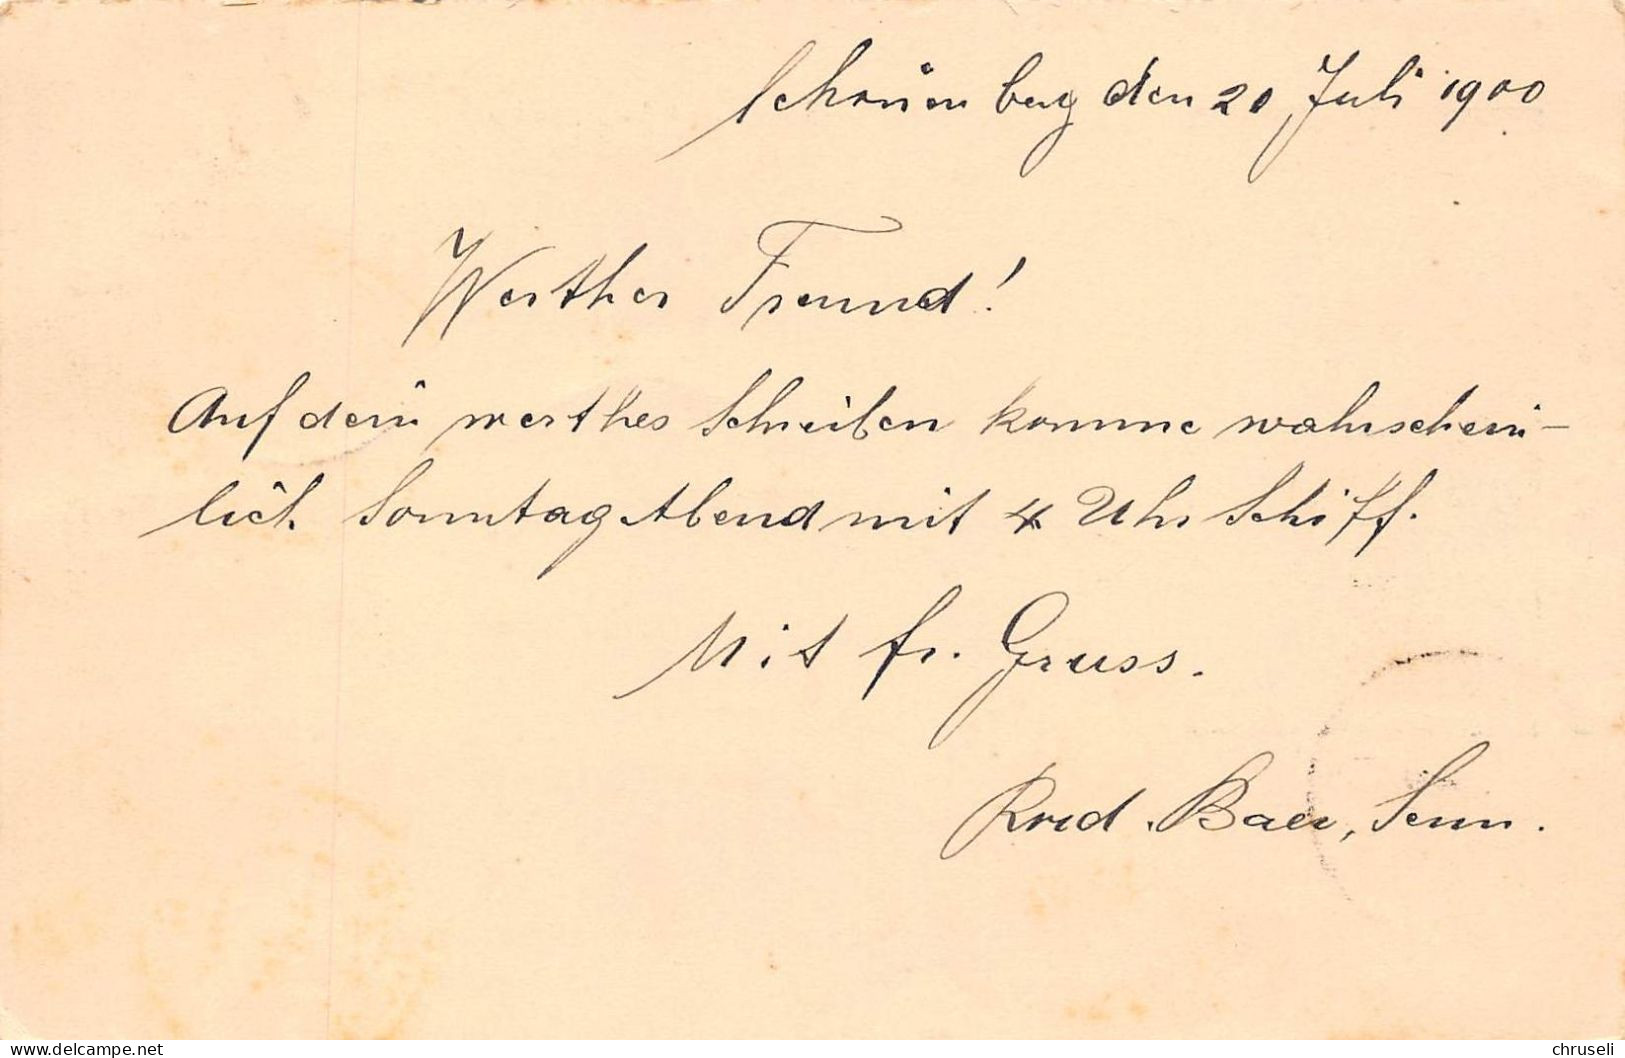 Schönenberg den 20 Juli 1900
Werther Freund!
Auf dein werthes Schreiben komme wahrschein-
lich Sonntag Abend mit 4 Uhr Schiff.
Mit fr. Gruss.
Rud. Baer, Senn.
delcampe.net
chruseli